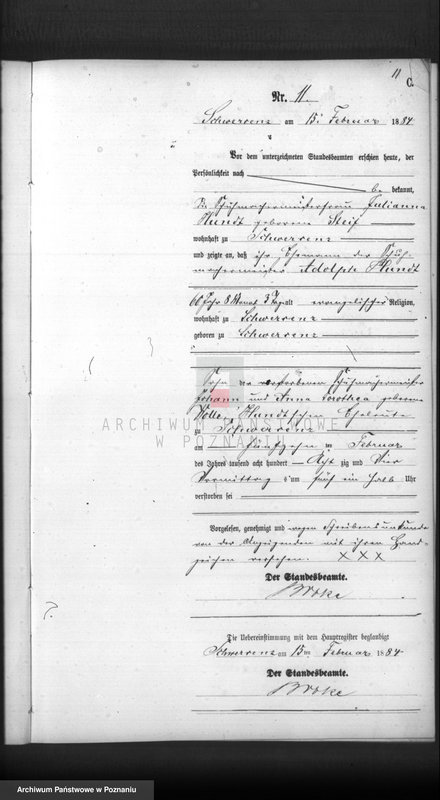 11
C.
Nr. 11.
Schwersenz am 15. Februar 1884.
Vor dem unterzeichneten Standesbeamten erschien heute, der
Persönlichkeit nach
be kannt,
die Schuhmachermeisterfrau Julianna
Hundt geborene Steif
wohnhaft zu Schwersenz
und zeigte an, daß ihr Ehemann der Schuh-
machermeister Adolph Hundt
60 Jahr 8 Monat 3 Tage alt, evangelischer Religion,
wohnhaft zu Schwersenz
geboren zu Schwersenz
Sohn der verstorbenen Schuhmachermeister
Johann und Anna Dorothea geborene
Hundtschen Eheleute
zu Schwersenz
am fünfzehn ten Februar
des Jahres tausend acht hundert Acht zig und Vier
Vormittag s um fünf ein halb Uhr
verstorben sei
Vorgelesen, genehmigt und wegen Schreibensunkunde
von der Anzeigenden mit ihren Hand-
zeichen versehen. X X X
Der Standesbeamte.
Broke
Die Uebereinstimmung mit dem Hauptregister beglaubigt
Schwersenz am 15ten Februar 1884.
Der Standesbeamte.
Broke
ARCHIWUM PAŃSTWOWE
W POZNANIU
Archiwum Państwowe w Poznaniu